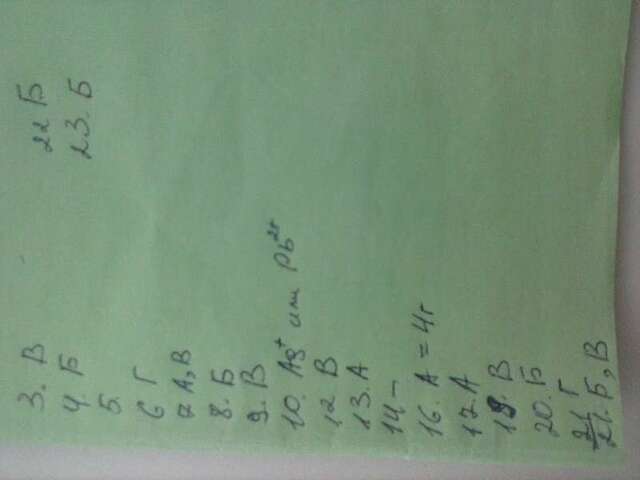 3. В
4. Б
5.
6 Г
7 А, В
8. Б
9. В
10. Ag⁺ или Pb²⁺
12 В
13. А
14. –
16. А = 4г
17. А
19. В
20. Б
21 Г
21. Б, В
22 Б
23. Б